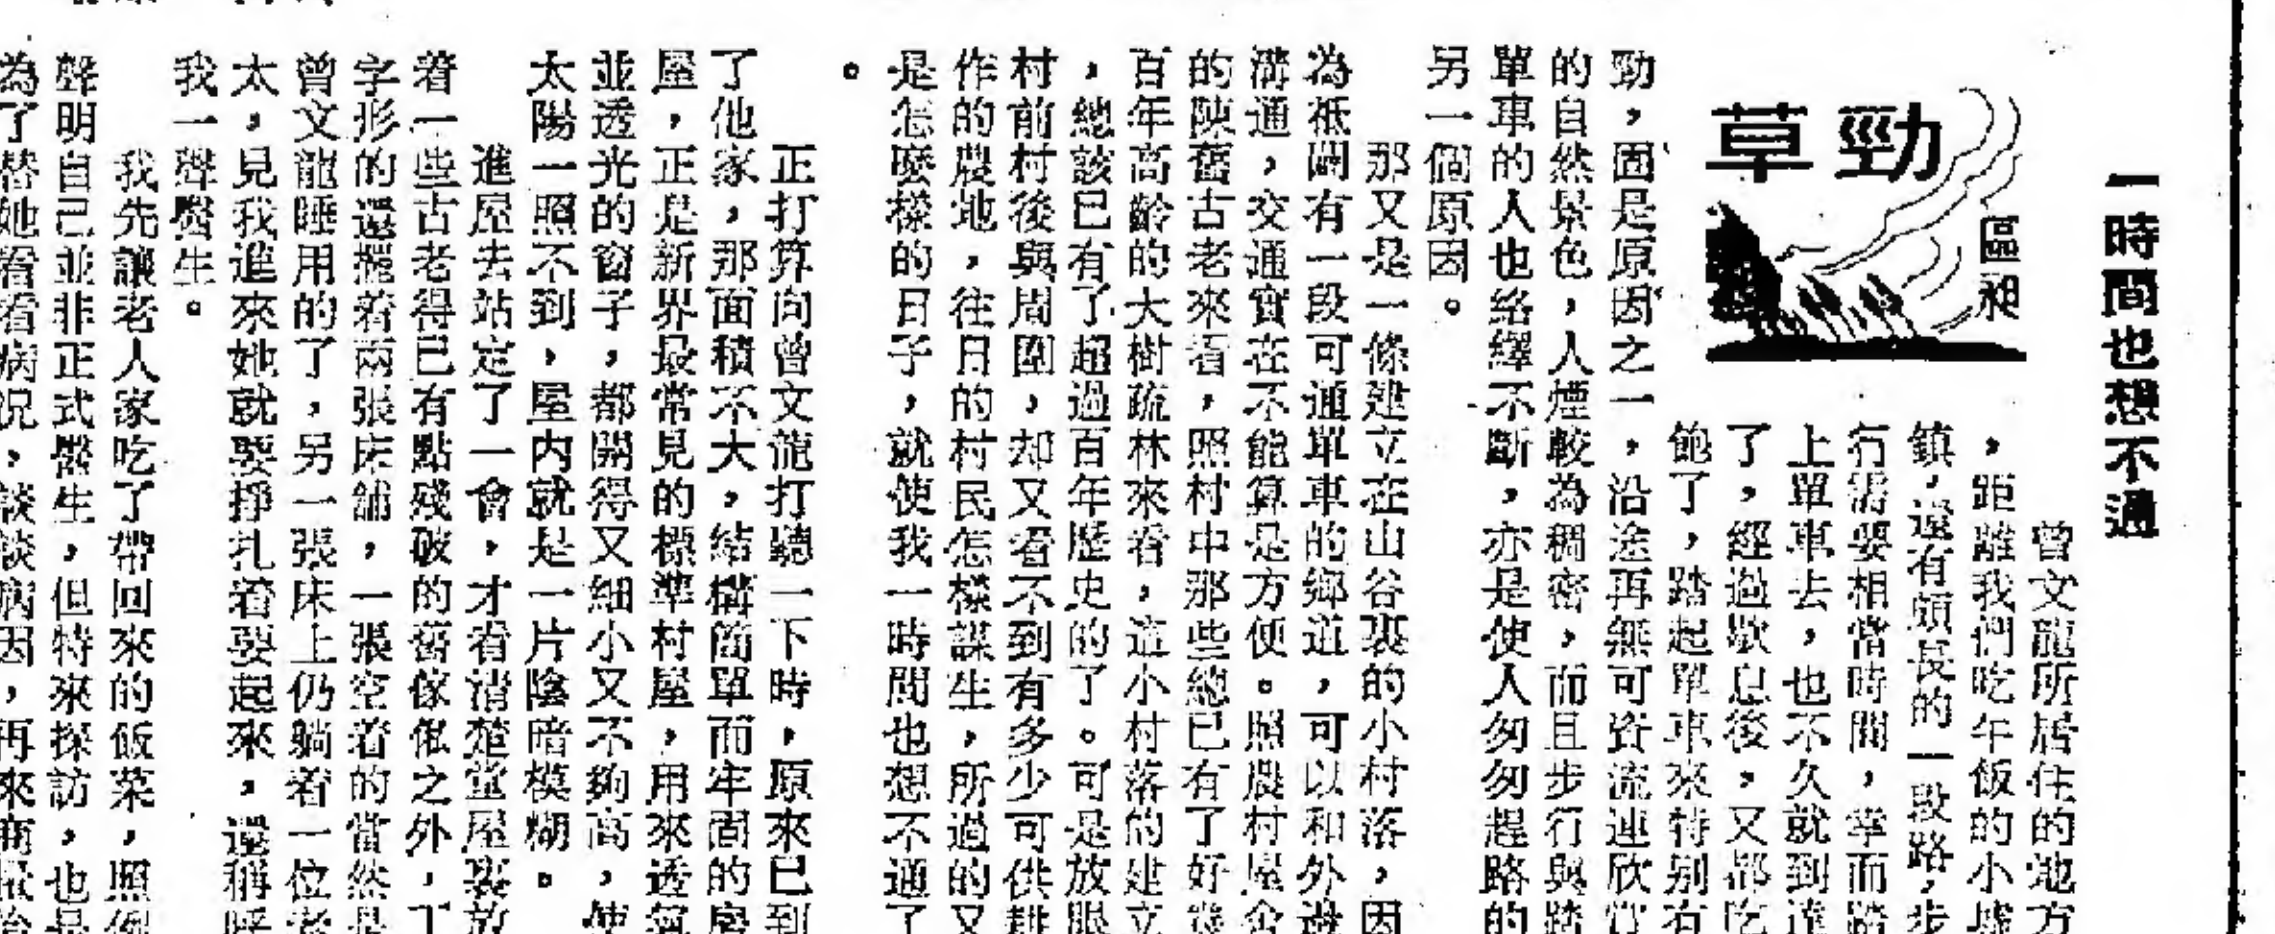 一時間也想不通
勁草
區昶
曾文龍所居住的地方
，距離我們吃午飯的小墟
鎮，還有頗長的一段路，步
行需要相當時間，幸而踏
上單車去，也不久就到達
了，經過歇息後，又都吃
飽了，踏起單車來特別有
勁，固是原因之一，沿途再無可資流連欣賞
的自然景色，人煙較為稠密，而且步行與踏
單車的人也絡繹不斷，亦是使人匆匆趕路的
另一個原因。
那又是一條建立在山谷裏的小村落，因
為祗闢有一段可通單車的鄉道，可以和外邊
溝通，交通實在不能算是方便。照農村屋舍
的陳舊古老來看，照村中那些總已有了好幾
百年高齡的大樹疏林來看，這小村落的建立
，總該已有了超過百年歷史的了。可是放眼
村前村後與周圍，却又看不到有多少可供耕
作的農地，往日的村民怎樣謀生，所過的又
是怎麼樣的日子，就使我一時間也想不通了
。
正打算向曾文龍打聽一下時，原來已到
了他家，那面積不大，結構簡單而牢固的房
屋，正是新界最常見的標準村屋，用來透氣
並透光的窗子，都開得又細小又不夠高，使
太陽一照不到，屋内就是一片陰暗模糊。
進屋去站定了一會，才看清楚堂屋裏放
着一些古老得已有點殘破的舊傢俬之外，丁
字形的還擺着兩張床舖，一張空着的當然是
曾文龍睡用的了，另一張床上仍躺着一位老
太，見我進來她就要掙扎着要起來，還稱呼
我一聲醫生。
我先讓老人家吃了帶回來的飯菜，照例
聲明自己並非正式醫生，但特來探訪，也是
為了替她看看病況，談談病因，再來商量